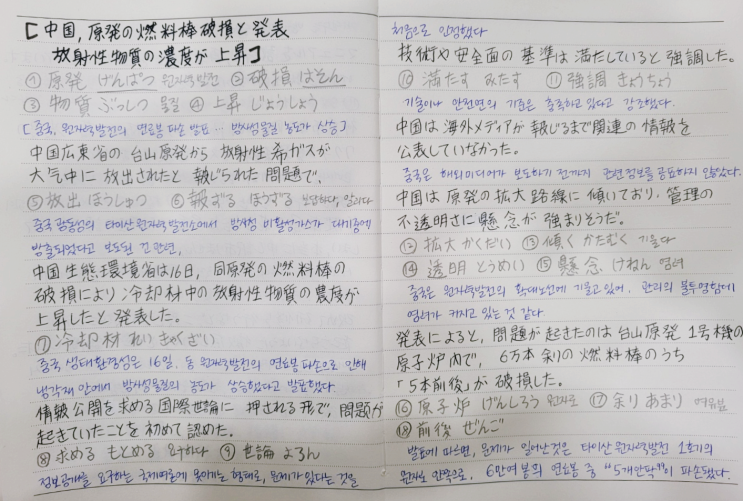 [中国, 原発の燃料棒破損と発表
放射性物質の濃度が上昇]
① 原発 げんぱつ 원자력발전 ② 破損 はそん
③ 物質 ぶっしつ 물질 ④ 上昇 じょうしょう
[중국, 원자력발전의 연료봉 파손 발표 … 방사성물질 농도가 상승]
中国広東省の台山原発から 放射性希ガスが
大気中に放出されたと報じられた問題で、
⑤ 放出 ほうしゅつ ⑥ 報ずる ほうずる 보답하다, 알리다
중국 광동성의 타이산 원자력발전소에서 방사성 비활성가스가 대기중에
방출되었다고 보도된 건 관련,
中国生態環境省は16日, 同原発の燃料棒の
破損により冷却材中の放射性物質の濃度が
上昇したと発表した。
⑦ 冷却材 れいきゃくざい
중국 생태환경성은 16일, 동 원자력발전의 연료봉 파손으로 인해
냉각재 안에서 방사성물질의 농도가 상승했다고 발표했다.
情報公開を求める国際世論に 押される形で, 問題が
起きていたことを初めて認めた。
⑧ 求める もとめる 요구하다 ⑨ 世論 よろん
정보공개를 요구하는 국제여론에 못이기는 형태로, 문제가 있다는 것을
처음으로 인정했다
技術や安全面の基準は満たしていると強調した。
⑩ 満たす みたす ⑪ 強調 きょうちょう
기술이나 안전면의 기준은 충족하고 있다고 강조했다.
中国は海外メディアが報じるまで関連の情報を
公表していなかった。
중국은 해외미디어가 보도하기 전까지 관련정보를 공표하지 않았었다.
中国は原発の拡大路線に傾いており, 管理の
不透明さに懸念が強まりそうだ。
⑫ 拡大 かくだい ⑬ 傾く かたむく 기울다
⑭ 透明 とうめい ⑮ 懸念 けねん 염려
중국은 원자력발전의 확대노선에 기울고 있어, 관리의 불투명함에
염려가 커지고 있는 것 같다.
発表によると, 問題が起きたのは台山原発 1号機の
原子炉内で, 6万本余りの燃料棒のうち
「5本前後」が破損した。
⑯ 原子炉 げんしろう 원자로 ⑰ 余り あまり 여유분
⑱ 前後 ぜんご
발표에 따르면, 문제가 일어난것은 타이산 원자력발전 1호기의
원자로 안쪽으로, 6만여 봉의 연료봉 중 "5개안팎"이 파손됐다.